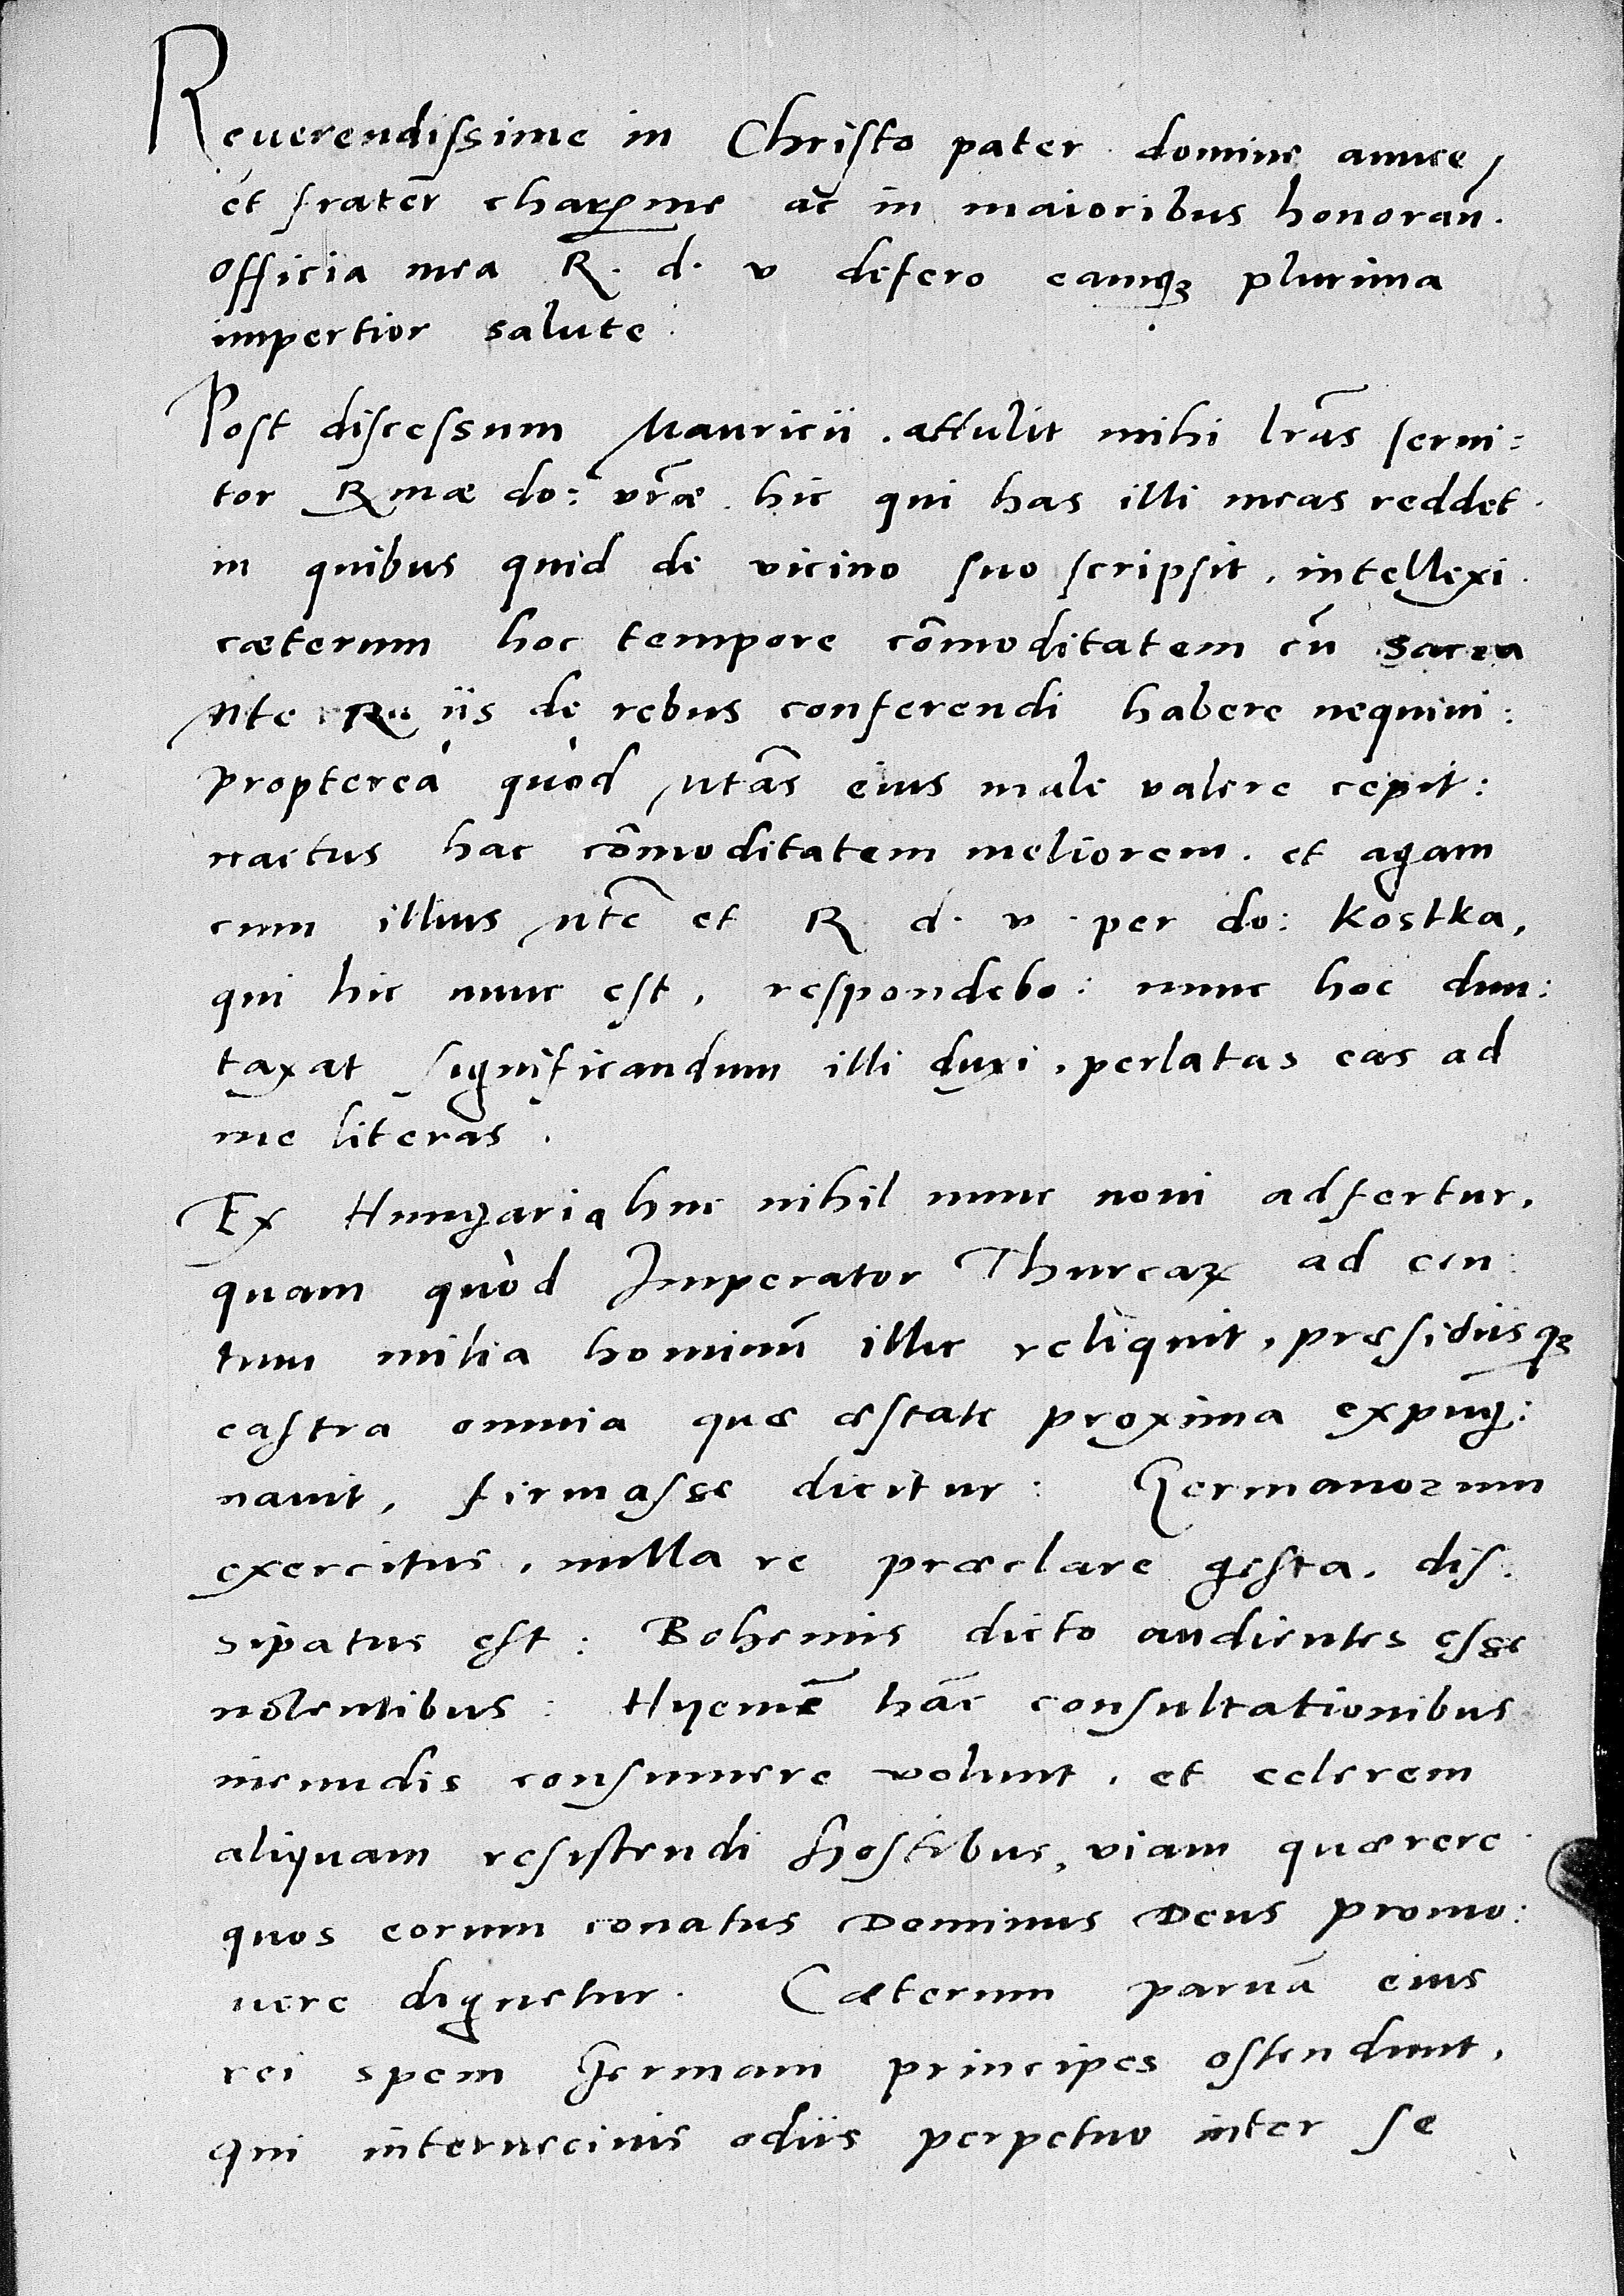 Reuerendissime in Christo pater domine amice,
et frater charissime ac in maioribus honoran.
Officia mea R. d. v defero eamq3 plurima
impertior salute.
Post discessum Mauricii . attulit mihi lr̃as serui:
tor Rmæ do: vr̃æ . hic qui has illi meas reddet.
in quibus quid de vicino suo scripsit, intellexi.
cæterum hoc tempore cõmoditatem cũ sacra
Mte Ra iis de rebus conferendi habere nequiui:
proptereà quòd Mtãs eius male valere cepit:
nactus hac cõmoditatem meliorem . et agam
cum illius Mtẽ et R d. v . per do: Kostka,
qui hic nunc est, respondebo: nunc hoc dun:
taxat significandum illi duxi, perlatas eas ad
me literas.
Ex Hungaria huc nihil nunc noui adfertur,
quam quòd Imperator Thurcarꝝ ad cen:
tum milia hominũ illic reliquit, præsidiisq3
castra omnia quæ æstate proxima expug̃:
nauit, firmasse dicitur: Germanorum
exercitus, nulla re præclare gesta, dis:
sipatus est: Bohemis dicto audientes esse
nolentibus: Hyemẽ hãc consultationibus
ineundis consumere volunt, et celerem
aliquam resistendi hostibus, viam quærere
quos eorum conatus Dominus Deus promo:
uere dignetur. Cæterum paruã eius
rei spem Germani principes ostendunt,
qui internecinis odiis perpetuo inter se